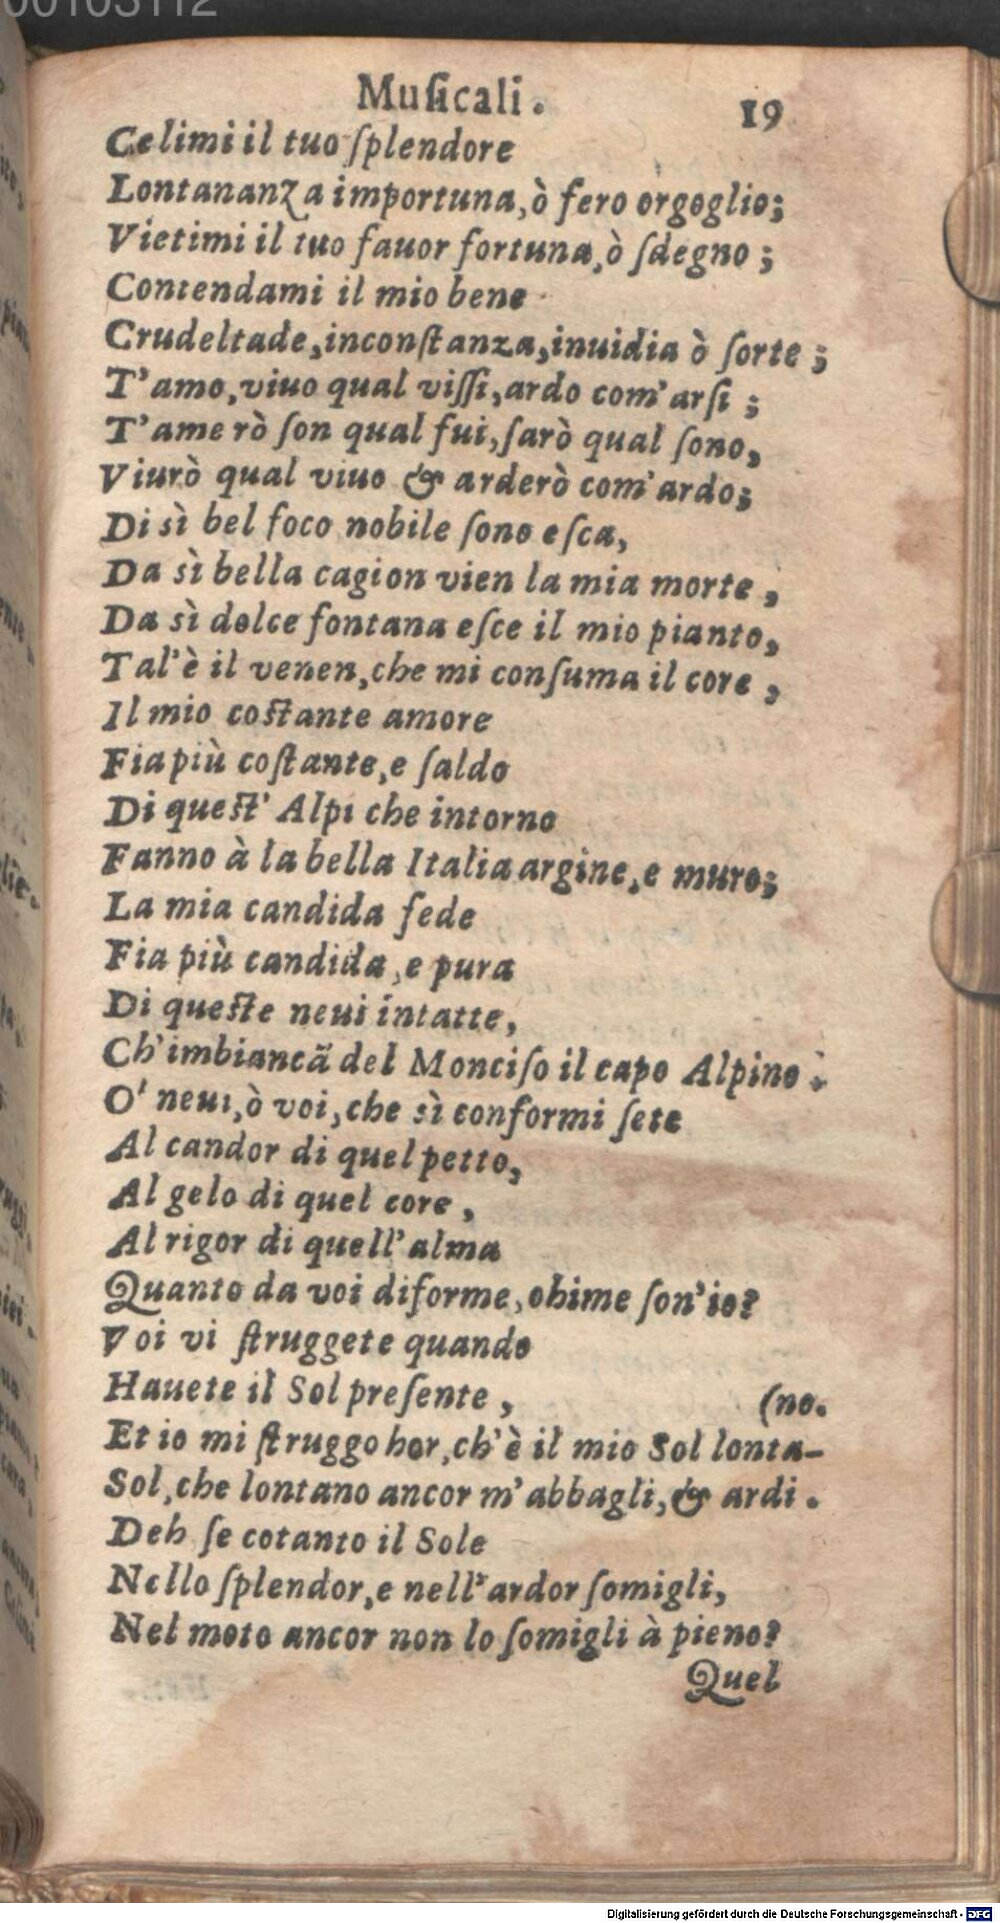 00103112
Muſicali. 19
Celimi il tuo ſplendore
Lontananza importuna, ò fero orgoglio;
Vietimi il tuo fauor fortuna, ò ſdegno;
Contendami il mio bene
Crudeltade, inconſtanza, inuidia ò ſorte;
T'amo, viuo qual viſſi, ardo com'arſi;
T'amerò ſon qual fui, ſarò qual ſono,
Viurò qual viuo & arderò com'ardo;
Di sì bel foco nobile ſono eſca,
Da sì bella cagion vien la mia morte,
Da sì dolce fontana eſce il mio pianto,
Tal'è il venen, che mi conſuma il core,
Il mio coſtante amore
Fia più coſtante, e ſaldo
Di queſt' Alpi che intorno
Fanno à la bella Italia argine, e muro;
La mia candida fede
Fia più candida, e pura
Di queſte neui intatte,
Ch'imbiancã del Monciſo il capo Alpino.
O' neui, ò voi, che sì conformi ſete
Al candor di quel petto,
Al gelo di quel core,
Al rigor di quell'alma
Quanto da voi diforme, ohime ſon'io?
Voi vi ſtruggete quando
Hauete il Sol preſente, (no.
Et io mi ſtruggo hor, ch'è il mio Sol lonta-
Sol, che lontano ancor m'abbagli, & ardi.
Deh ſe cotanto il Sole
Nello ſplendor, e nell'ardor ſomigli,
Nel moto ancor non lo ſomigli à pieno?
Quel
Digitalisierung gefördert durch die Deutsche Forschungsgemeinschaft - DFG